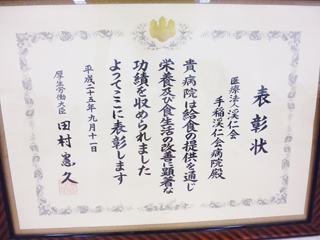 表彰状
医療法人渓仁会
手稲渓仁会病院殿
貴病院は給食の提供を通じ
栄養及び食生活の改善に顕著な
功績を収められました
よってここに表彰します
平成二十五年九月十一日
厚生労働大臣 田村憲久